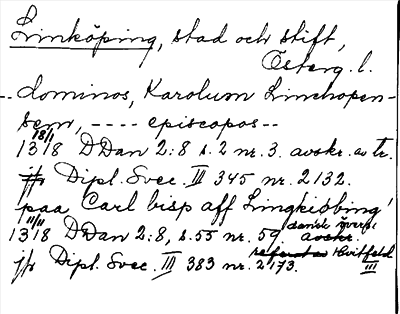 Linköping, stad och stift,
Österg. l.
-- dominos, Karolum Linchopen-
sem, ---- episcopos --
18/1
1318 DDan 2:8 s. 2 nr. 3. avskr. av tr.
jfr Dipl. Svec. III 345 nr. 2132.
paa Carl bisp aff Lingkiøbing
11/11 dansk övers.
1318 DDan 2:8, s. 55 nr. 59 avskr.
Hvitfeld
jfr Dipl. Svec. III 383 nr. 2173. III